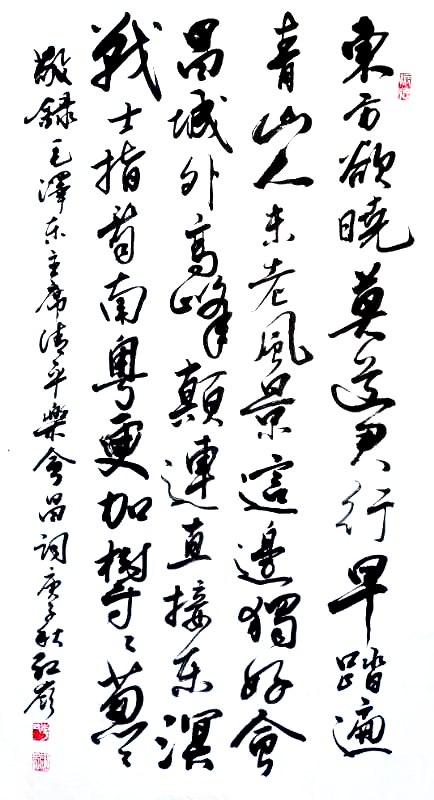 東方欲曉莫道君行早踏遍
青山人未老風景這邊獨好會
昌城外高峰顛連直接東溟
戰士指看南粵更加鬱〻蔥〻
敬錄毛澤東主席清平樂會昌詞庚子秋紅嶺